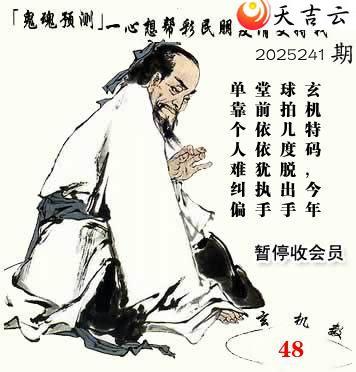 天吉云
「鬼魂预测」一心想帮彩民朋
2025241期
玄机特码，今年
球拍几度脱出手
堂前依依犹执手
单靠个人难纠偏
暂停收会员
玄机数
48